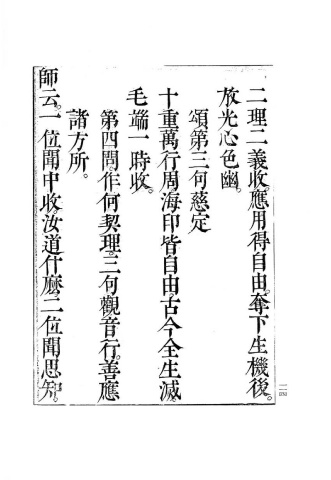 二理二義收。應用得自由。奪下生機後。
放光心色幽。
頌第三何慈定
十重萬行周。海印皆自由。古今全生滅。
毛端一時收。
第四問作何契理。三何觀音行。善應
諸方所。
師云。一位聞中收汝道什麼。二位聞思知。